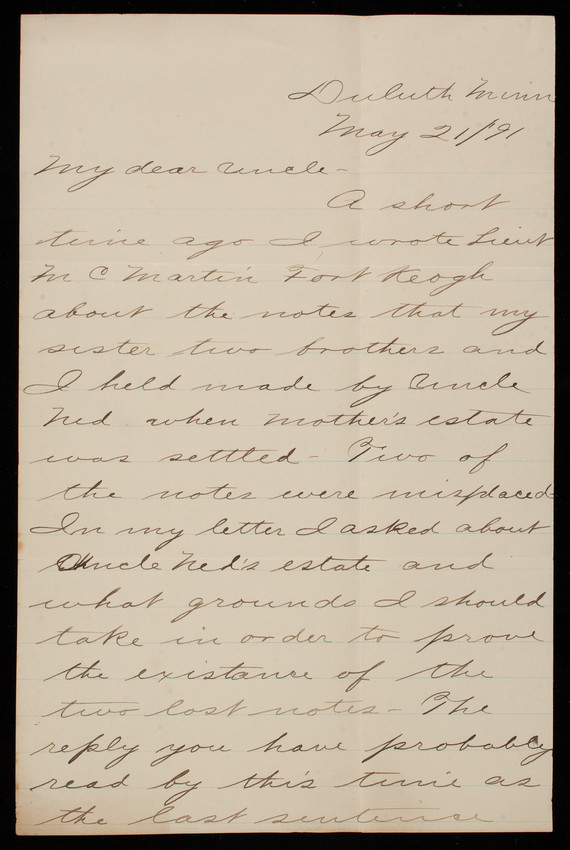 Duluth Minn
May 21/91
My dear Uncle-
A short
time ago I wrote Lieut
McMartin Fort Keogh
about the notes that my
sister two brothers and
I held made by Uncle
Ned when mother's estate
was settled - Two of
the notes were misplaced-
In my letter I asked about
Uncle Ned's estate and
what grounds I should
take in order to prove
the existance of the
two lost notes - The
reply you have probably
read by this time as
the last sentence